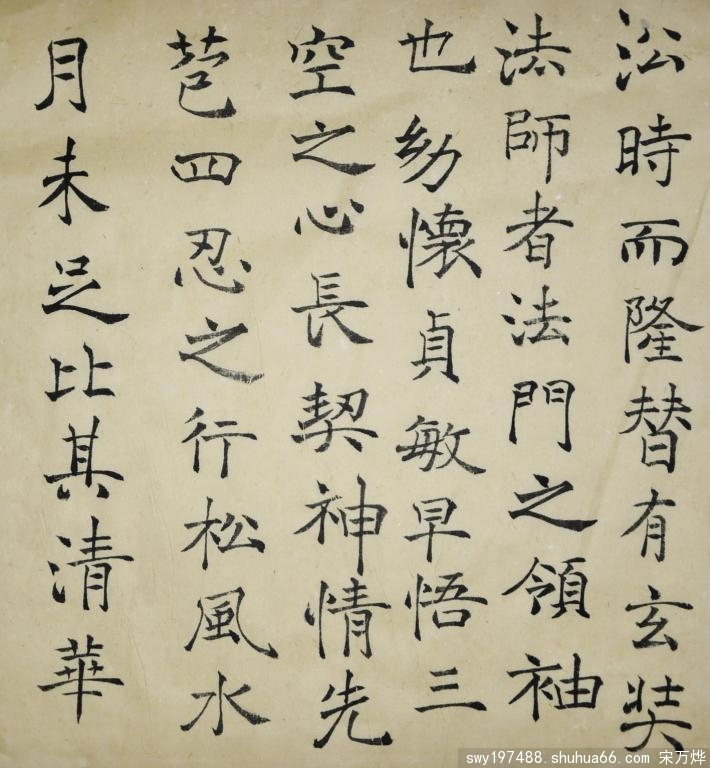 沿時而隆替有玄奘
法師者法門之領袖
也幼懷貞敏早悟三
空之心長契神情先
苞四忍之行松風水
月未足比其清華
swy197488.shuhua66.com 宋万烨